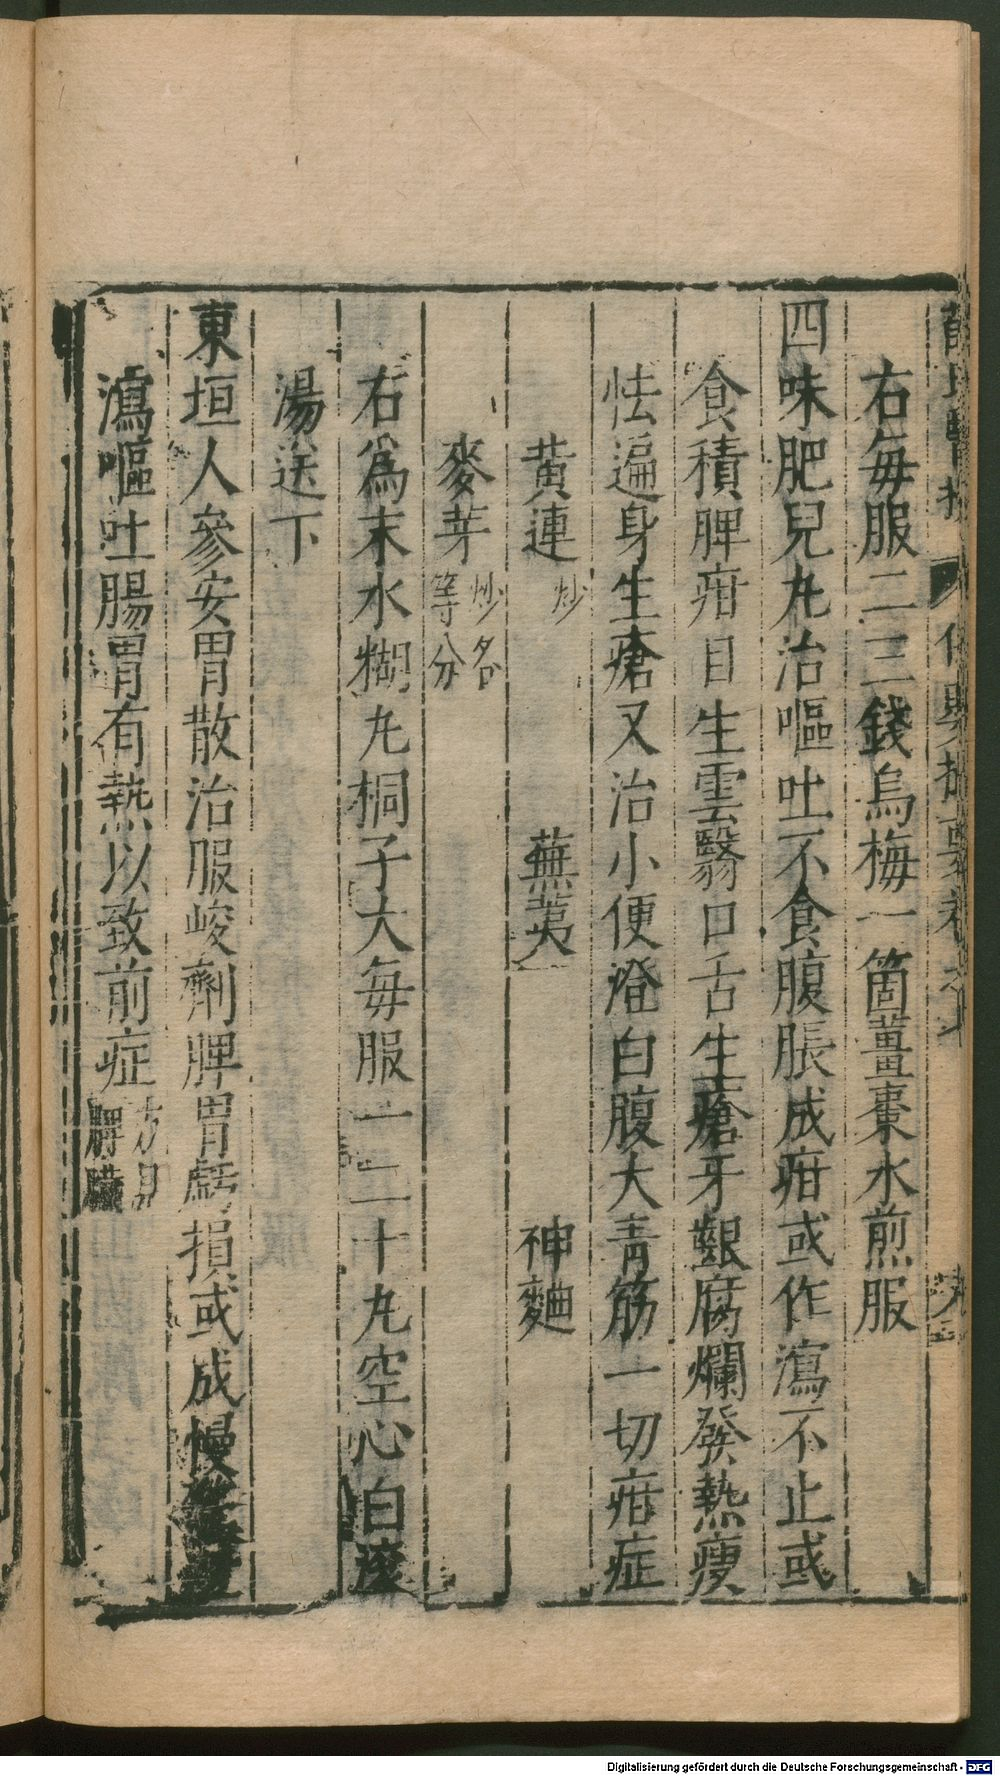 右每服二三錢烏梅一箇薑棗水煎服
四味肥兒丸治嘔吐不食腹脹成疳或作瀉不止或
食積脾疳目生雲翳口舌生瘡牙齦腐爛發熱瘦
怯遍身生瘡又治小便澄白腹大青筋一切疳症
黃連炒 蕪荑 神麯
麥芽炒各等分
右爲末水糊丸桐子大每服一二十丸空心白滾
湯送下
東垣人參安胃散治服峻劑脾胃虧損或成慢
瀉嘔吐腸胃有熱以致前症方見
Digitalisierung gefördert durch die Deutsche Forschungsgemeinschaft - DFG